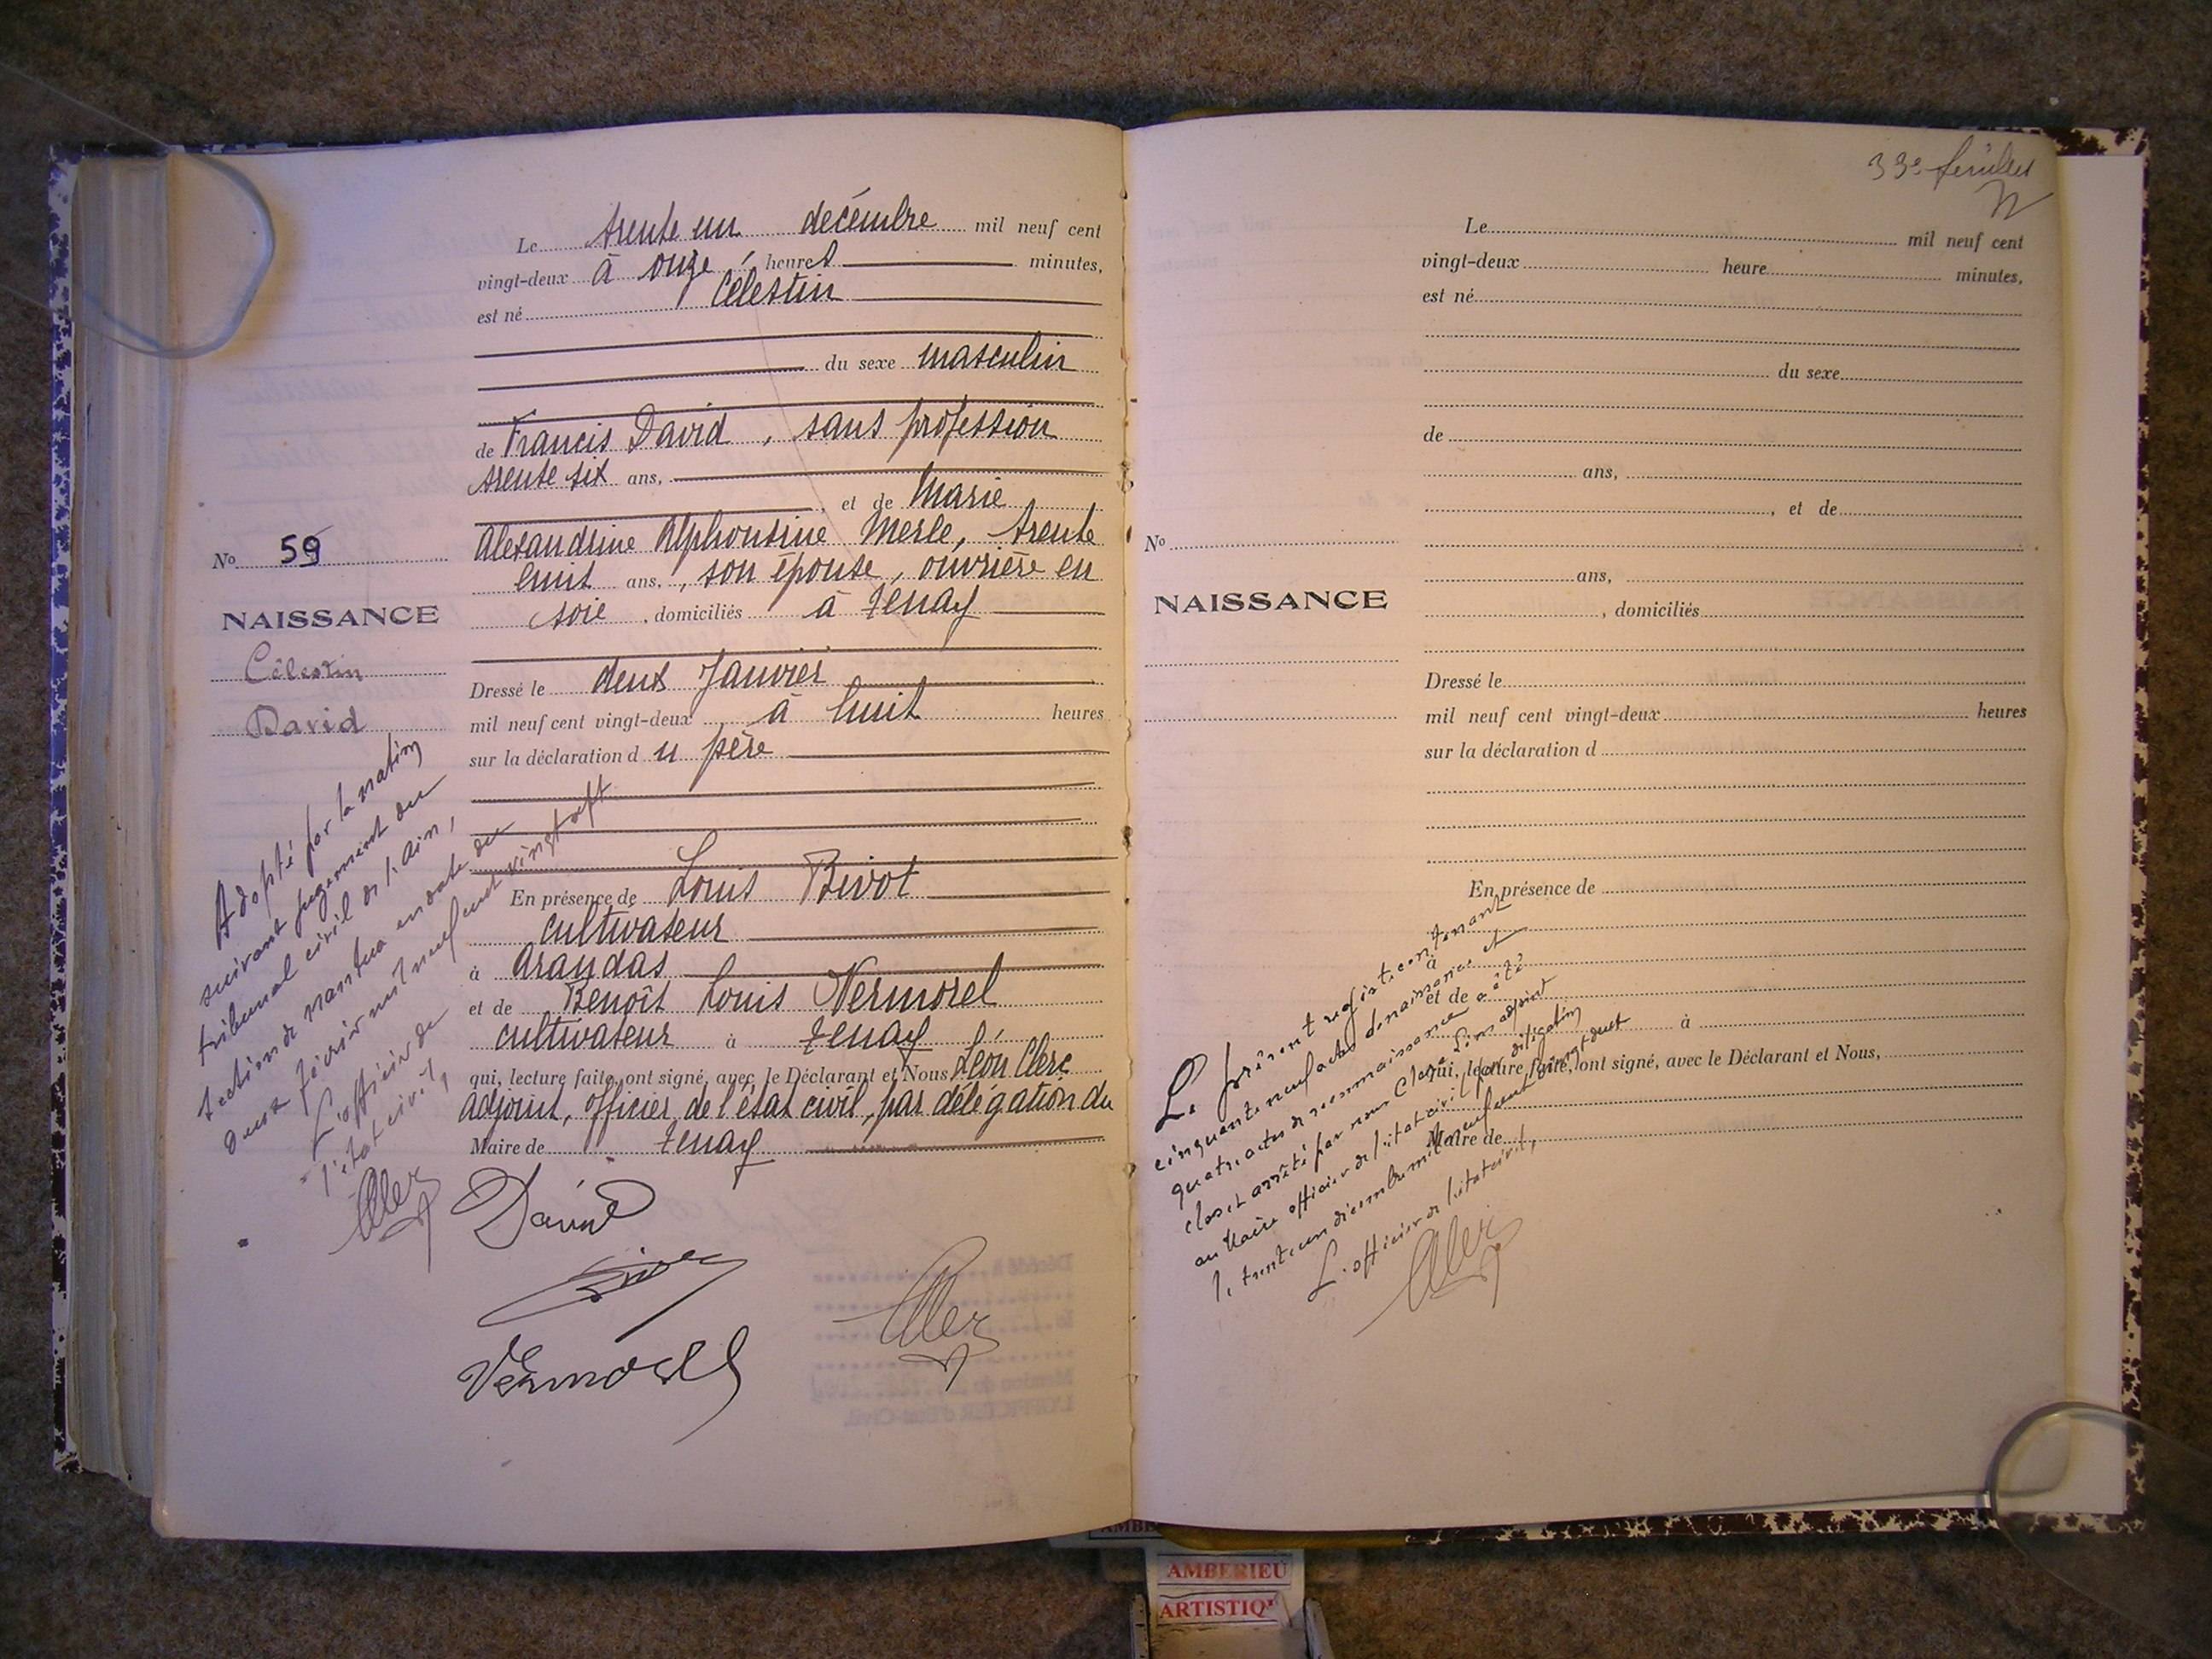 Le trente un décembre mil neuf cent
vingt-deux à onze heures minutes,
est né Célestin
du sexe masculin
de Francis David, sans profession
trente six ans,
, et de Marie
Alexandrine Alphonsine Merle, trente
huit ans, son épouse, ouvrière en
soie, domiciliés à Tenay
Dressé le deux Janvier
mil neuf cent vingt-deux à huit heures
sur la déclaration du père
En présence de Louis Bivot
cultivateur
à Arandas
et de Benoît Louis Vermorel
cultivateur à Tenay
qui, lecture faite, ont signé, avec le Déclarant et Nous Léon Clerc
adjoint, officier de l'état civil, par délégation du
Maire de Tenay
David
Vermorel
No 59
NAISSANCE
Célestin
David
Adopté par la nation
suivant jugement du
tribunal civil de l'Ain,
section de Nantua en date du
deux février mil neuf cent vingt sept
L'officier de
l'état civil,
33e
Le mil neuf cent
vingt-deux heure minutes,
est né
du sexe
de
ans,
, et de
ans,
, domiciliés
Dressé le
mil neuf cent vingt-deux heures
sur la déclaration d
En présence de
à
et de
à
qui, lecture faite, ont signé, avec le Déclarant et Nous,
Maire de
No
NAISSANCE
Le présent registre contenant
cinquante neuf actes de naissance et
quatre actes de reconnaissance a été
clos et arrêté par nous Clerc Léon adjoint
au Maire officier de l'état civil par délégation
le trente un décembre mil neuf cent vingt deux
L'officier de l'état civil,
AMBERIEU
ARTISTIQ